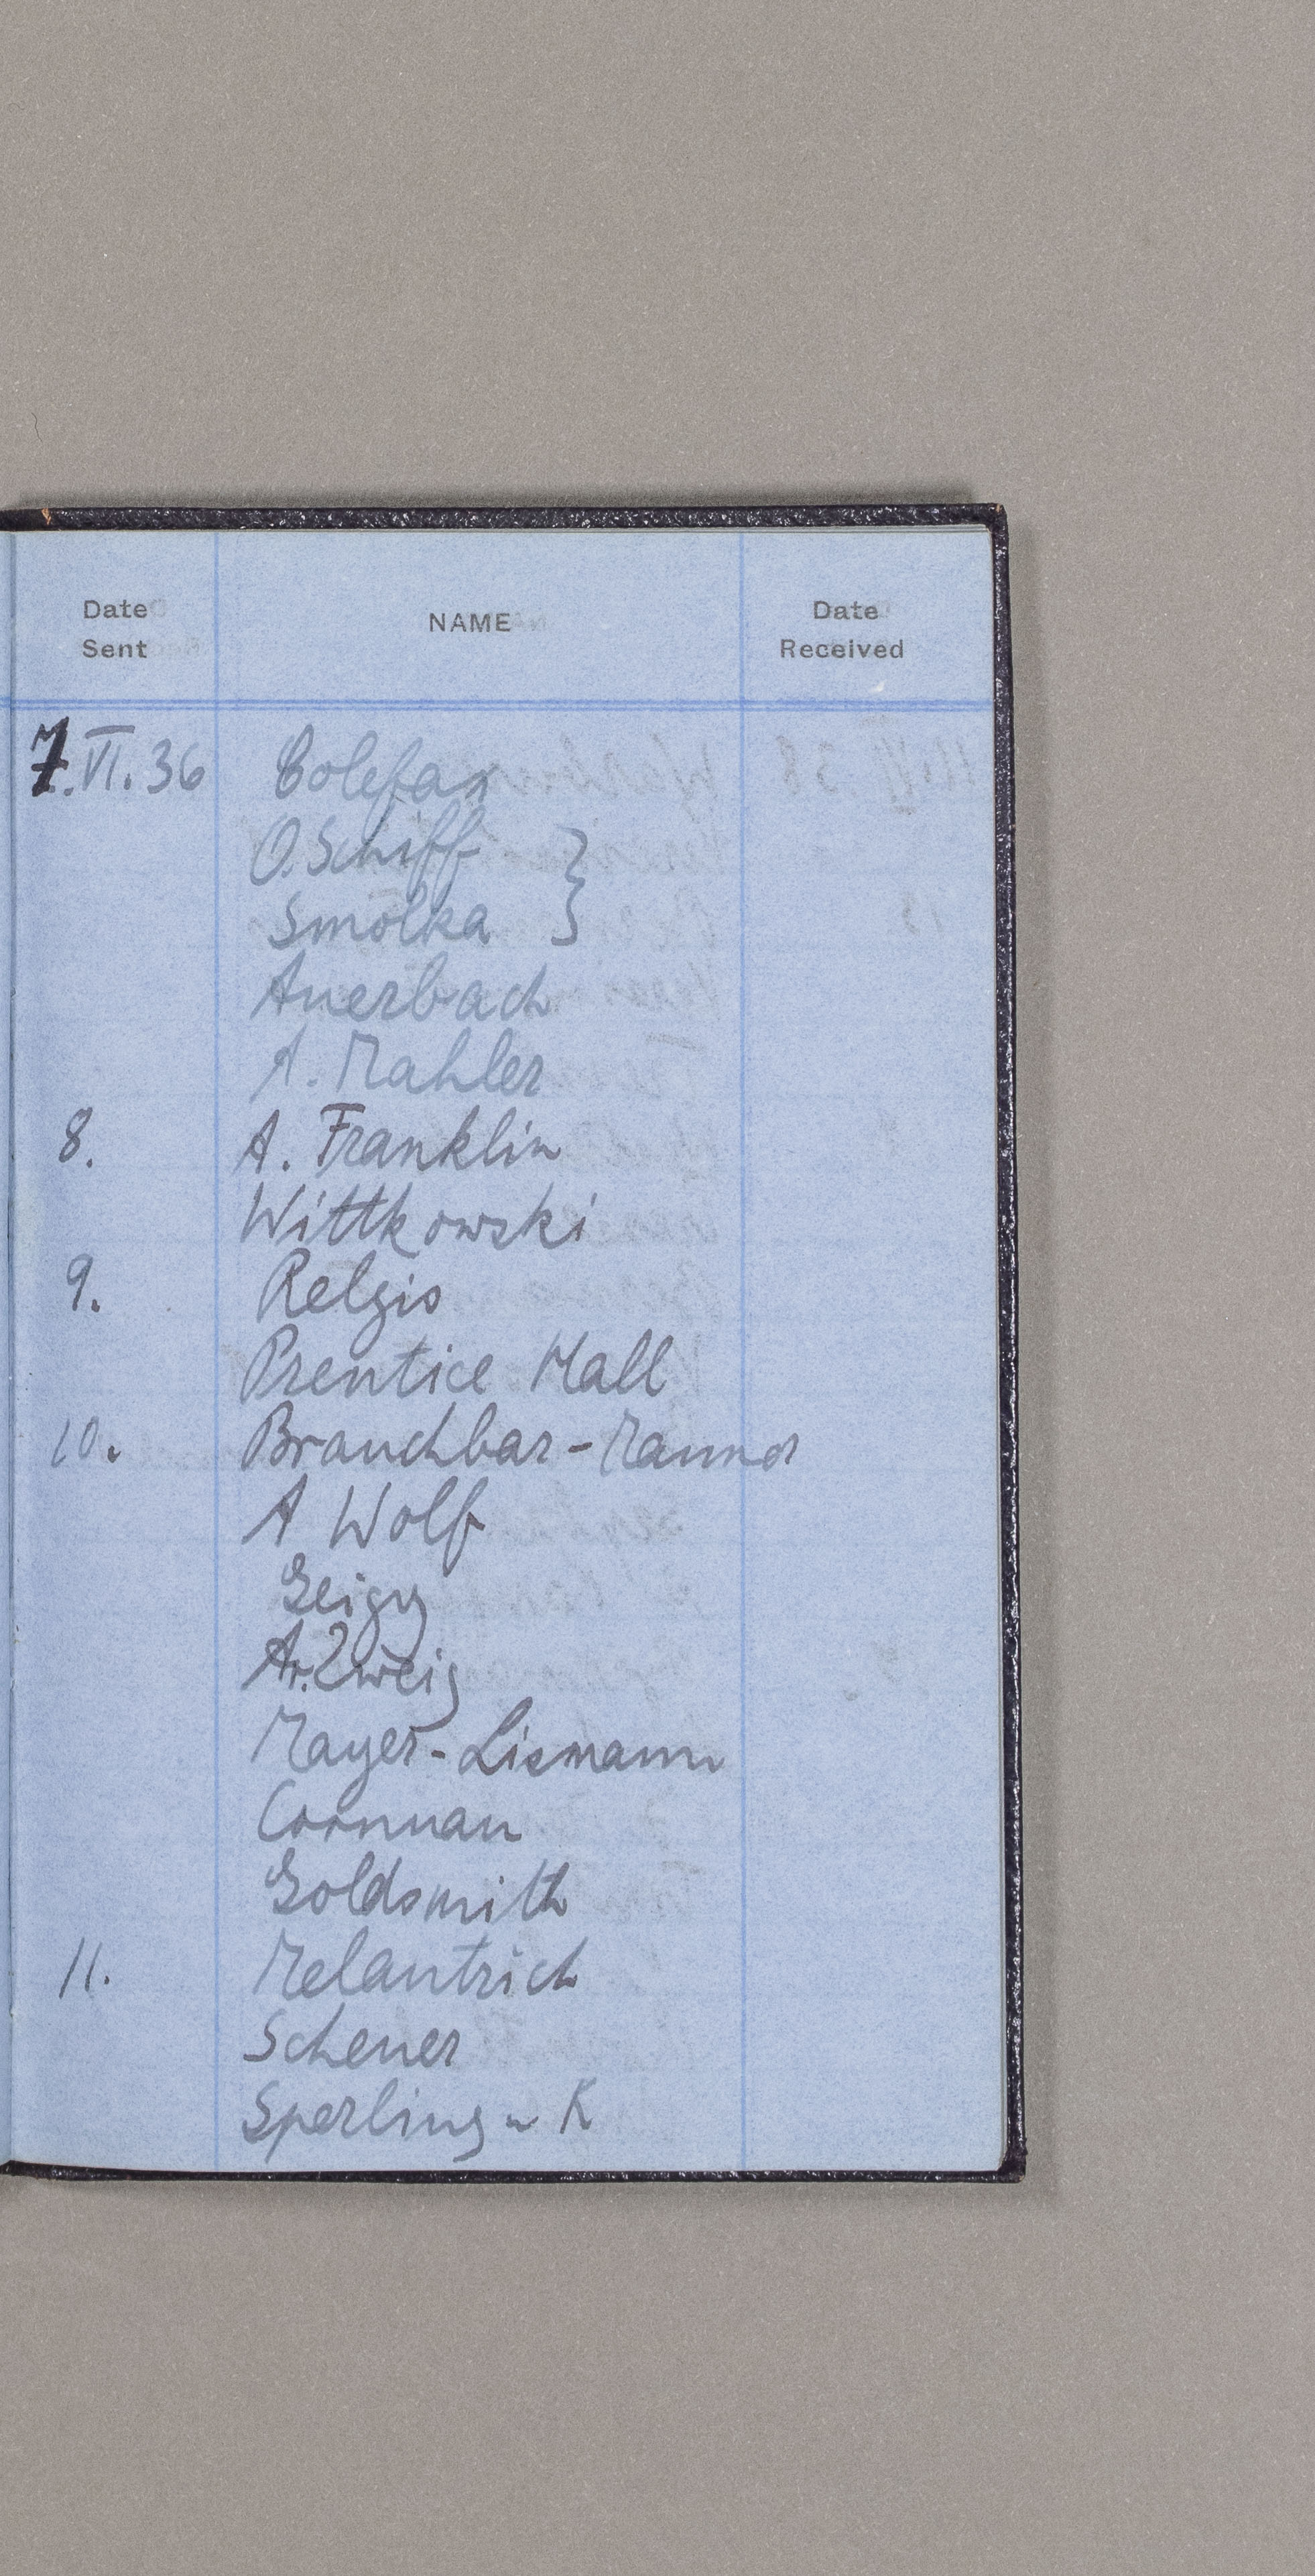 Date Sent NAME Date Received
7.VI.36 Colefax
O. Schiff }
Smolka
Auerbach
A. Mahler
8. A. Franklin
Wittkowski
9. Relgis
Prentice Hall
10. Brauchbar-
A Wolf
Geigy
Ar. Zweig
Mayer-Lismann
Cornuau
Goldsmith
11. Melantrich
Scheuer
Sperling u K